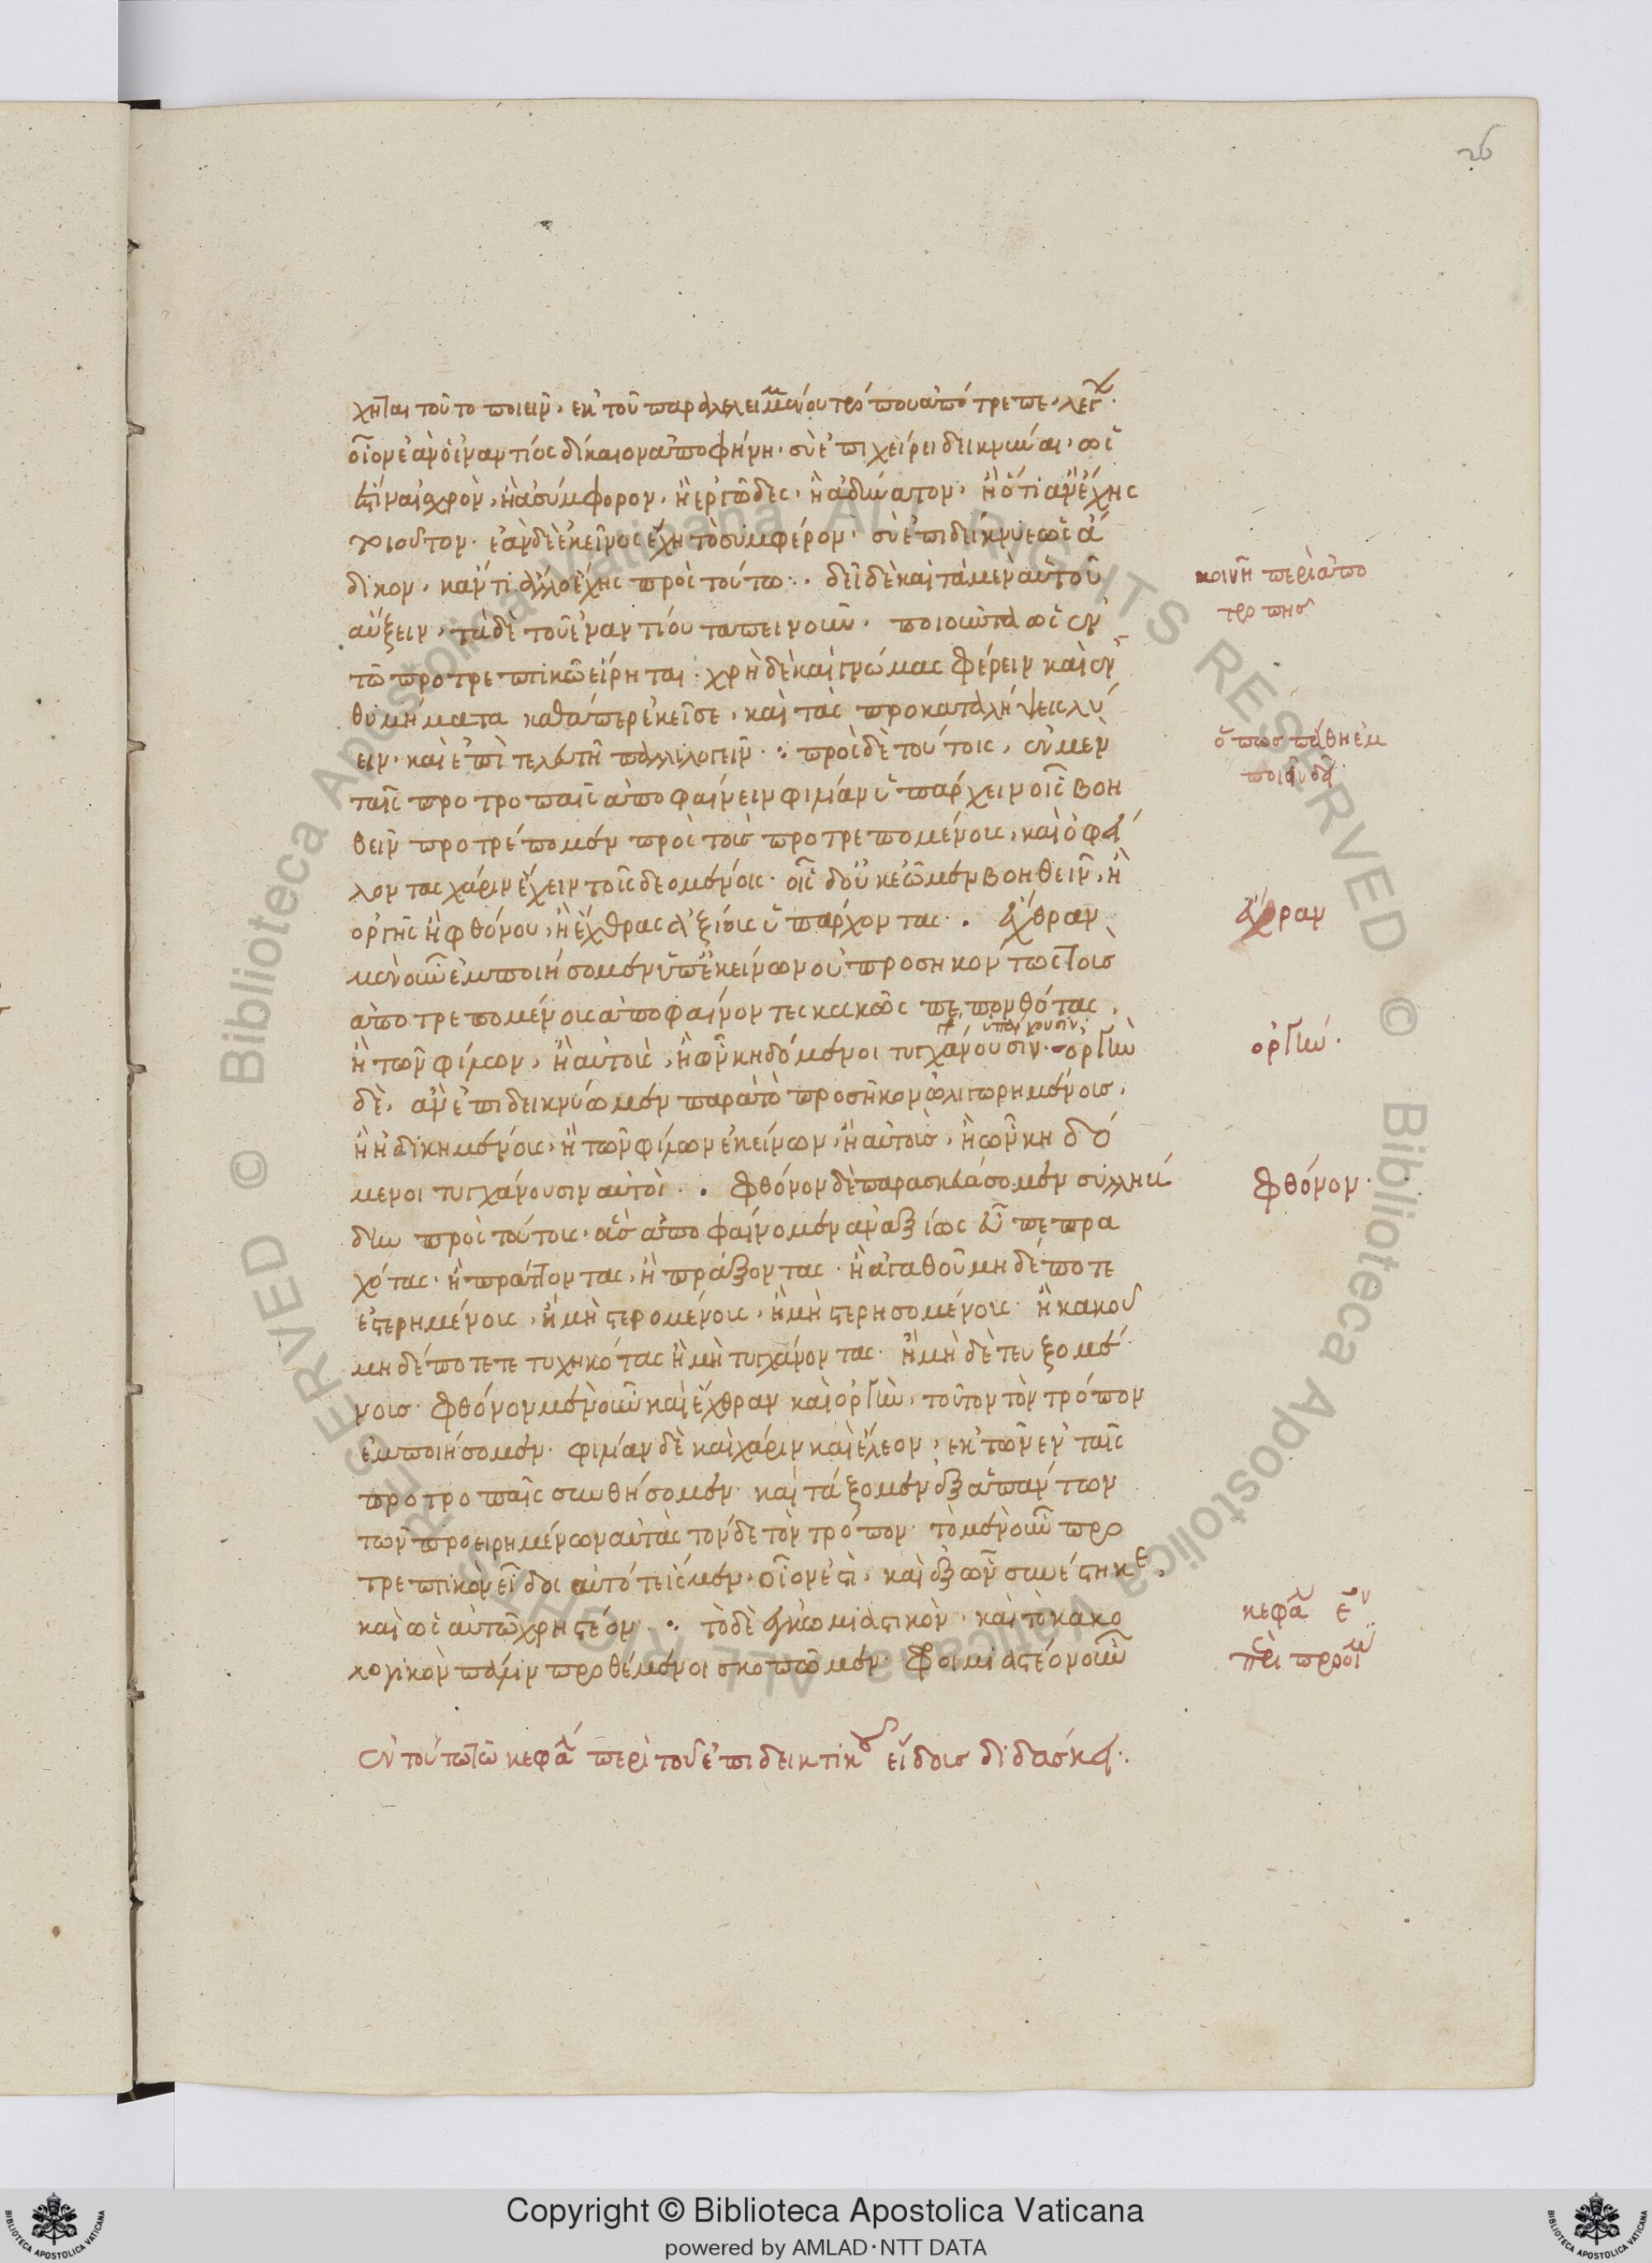 26
χηται τοῦτο ποιεῖν, ἐκ τοῦ παραλελειμμένου τρόπου ἀπότρεπε, λέγω·
οἷον ἐὰν ὁ ἐναντίος δίκαιον ἀποφήνη, σὺ ἐπιχείρει δεικνύναι, ὡς
ἐστὶν αἰσχρὸν, ἢ ἀσύμφορον, ἢ ἐργῶδες, ἢ ἀδύνατον, ἢ ὅτι ἂν ἔχης
τοιοῦτον. ἐὰν δὲ ἐκεῖνος ἔχη τὸ συμφέρον, σὺ ἐπιδείκνυε ὡς ἄ
δικον, κἄν τι ἄλλο ἔχης πρὸς τούτω. δεῖ δὲ καὶ τὰ μὲν αὑτοῦ
κοινῆ περὶ ἀπο
τροπησ
αὔξειν, τὰ δὲ τοῦ ἐναντίου ταπεινοῦν, ποιοῦντα ὡς ἐν
τῶ προτρεπτικῶ εἴρηται. χρὴ δὲ καὶ γνώμας φέρειν καὶ ἐν
θυμήματα καθάπερ ἐκεῖσε, καὶ τὰς προκαταλήψεις λύ
ὅπως πάθη ἐμ
ποιεῖν δεῖ
ειν, καὶ ἐπὶ τελευτῆ παλιλλογεῖν. πρὸς δὲ τούτοις, ἐν μὲν
ταῖς προτροπαῖς ἀποφαίνειν φιλίαν ὑπάρχειν οἷς βοη
θεῖν προτρέπομεν πρὸς τοὺς προτρεπομένους, καὶ ὀφεί
λοντας χάριν ἔχειν τοῖς δεομένοις. οἷς δ' οὐκ ἐῶμεν βοηθεῖν, ἢ
ὀργῆς ἢ φθόνου, ἢ ἔχθρας ἀξίους ὑπάρχοντας. ἔχθραν
ἔχθραν
μὲν οὖν ἐμποιήσομεν ὑπ' ἐκείνων οὐ προσηκόντως τοὺς
ἀποτρεπομένους ἀποφαίνοντες κακῶς πεπονθότας,
ἢ τῶν φίλων, ἢ αὐτοὺς, ἢ ὧν κηδόμενοι τυγχάνουσιν. ὀργὴν
ὑπάρχουσιν
ὀργὴν.
δὲ, ἂν ἐπιδεικνύωμεν παρὰ τὸ προσῆκον ὠλιγωρημένους,
ἢ ἠδικημένους, ἢ τῶν φίλων ἐκείνων, ἢ αὐτοὺς, ἢ ὧν κηδό
μενοι τυγχάνουσιν αὐτοὶ. φθόνον δὲ παρασκευάσομεν συλλήβ
φθόνον.
δην πρὸς τούτους, οὓς ἀποφαίνομεν ἀναξίως εὖ πεπρα
χότας, ἢ πράττοντας, ἢ πράξοντας. ἢ ἀγαθοῦ μηδέποτε
ἐστερημένους, ἢ μὴ στερομένους, ἢ μὴ στερησομένους. ἢ κακοῦ
μηδέποτε τετυχηκότας ἢ μὴ τυγχάνοντας. ἢ μὴ δὲ τευξομέ
νους. φθόνον μὲν οὖν καὶ ἔχθραν καὶ ὀργὴν, τοῦτον τὸν τρόπον
ἐμποιήσομεν. φιλίαν δὲ καὶ χάριν καὶ ἔλεον, ἐκ τῶν ἐν ταῖς
προτροπαῖς συνθήσομεν. καὶ τάξομεν ἐξ ἁπάντων
τῶν προειρημένων αὐτὰς τόνδε τὸν τρόπον. τὸ μὲν οὖν προ
τρεπτικὸν εἶδος αὐτό τε ἴσμεν, οἷόν ἐστι, καὶ ἐξ ὧν συνέστηκε,
καὶ ὡς αὐτῶ χρηστέον. τὸ δὲ ἐγκωμιαστικὸν, καὶ τὸ κακο
κεφά ε
περὶ προοι
λογικὸν πάλιν προθέμενοι σκοπῶμεν. φροιμιαστέον οὖν
ἐν τούτω τῶ κεφα περὶ τοῦ ἐπιδεικτικοῦ εἴδους διδάσκει.
Copyright © Biblioteca Apostolica Vaticana
powered by AMLAD·NTT DATA